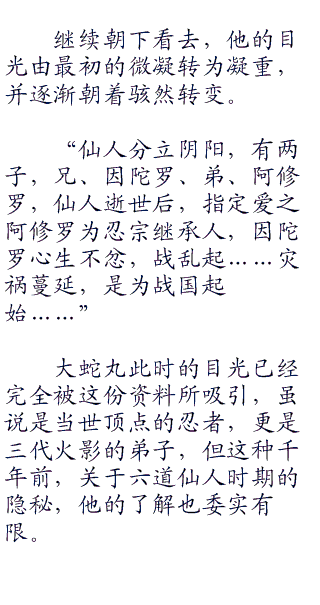 继续朝下看去，他的目
光由最初的微凝转为凝重，
并逐渐朝着骇然转变。
“仙人分立阴阳，有两
子，兄、因陀罗、弟、阿修
罗，仙人逝世后，指定爱之
阿修罗为忍宗继承人，因陀
罗心生不忿，战乱起……灾
祸蔓延，是为战国起
始……”
大蛇丸此时的目光已经
完全被这份资料所吸引，虽
说是当世顶点的忍者，更是
三代火影的弟子，但这种千
年前，关于六道仙人时期的
隐秘，他的了解也委实有
限。